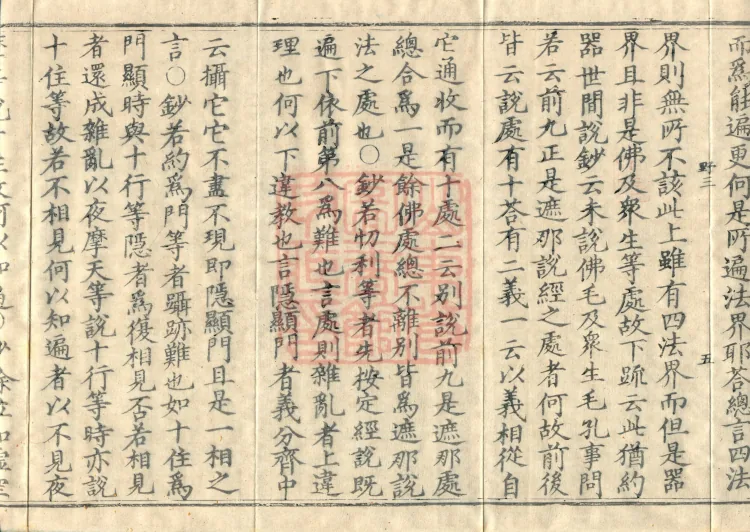 而為能遍更何是所遍法界耶荅緫言四法
界則無所不該此上雖有四法界而但是器
界且非是佛及衆生等處故下䟽云此猶約
器世間說鈔云未說佛毛及衆生毛孔事問
野三
五
若云前九正是遮那說經之處者何故前後
皆云說處有十荅有二義一云以義相從自
它通收而有十處二云別說前九是遮那處
緫合為一是餘佛處緫不離別皆為遮那說
法之處也○鈔若忉利等者先按定經說既
遍下依前第八為難也言處則雜亂者上違
理也何以下違教也言隱顯門者義分齊中
云攝它它不盡不現即隱顯門且是一相之
言○鈔若約為門等者躡跡難也如十住為
門顯時與十行等隱者為復相見否若相見
者還成雜亂以夜摩天等說十行等時亦說
十住等故若不相見何以知遍者以不見夜